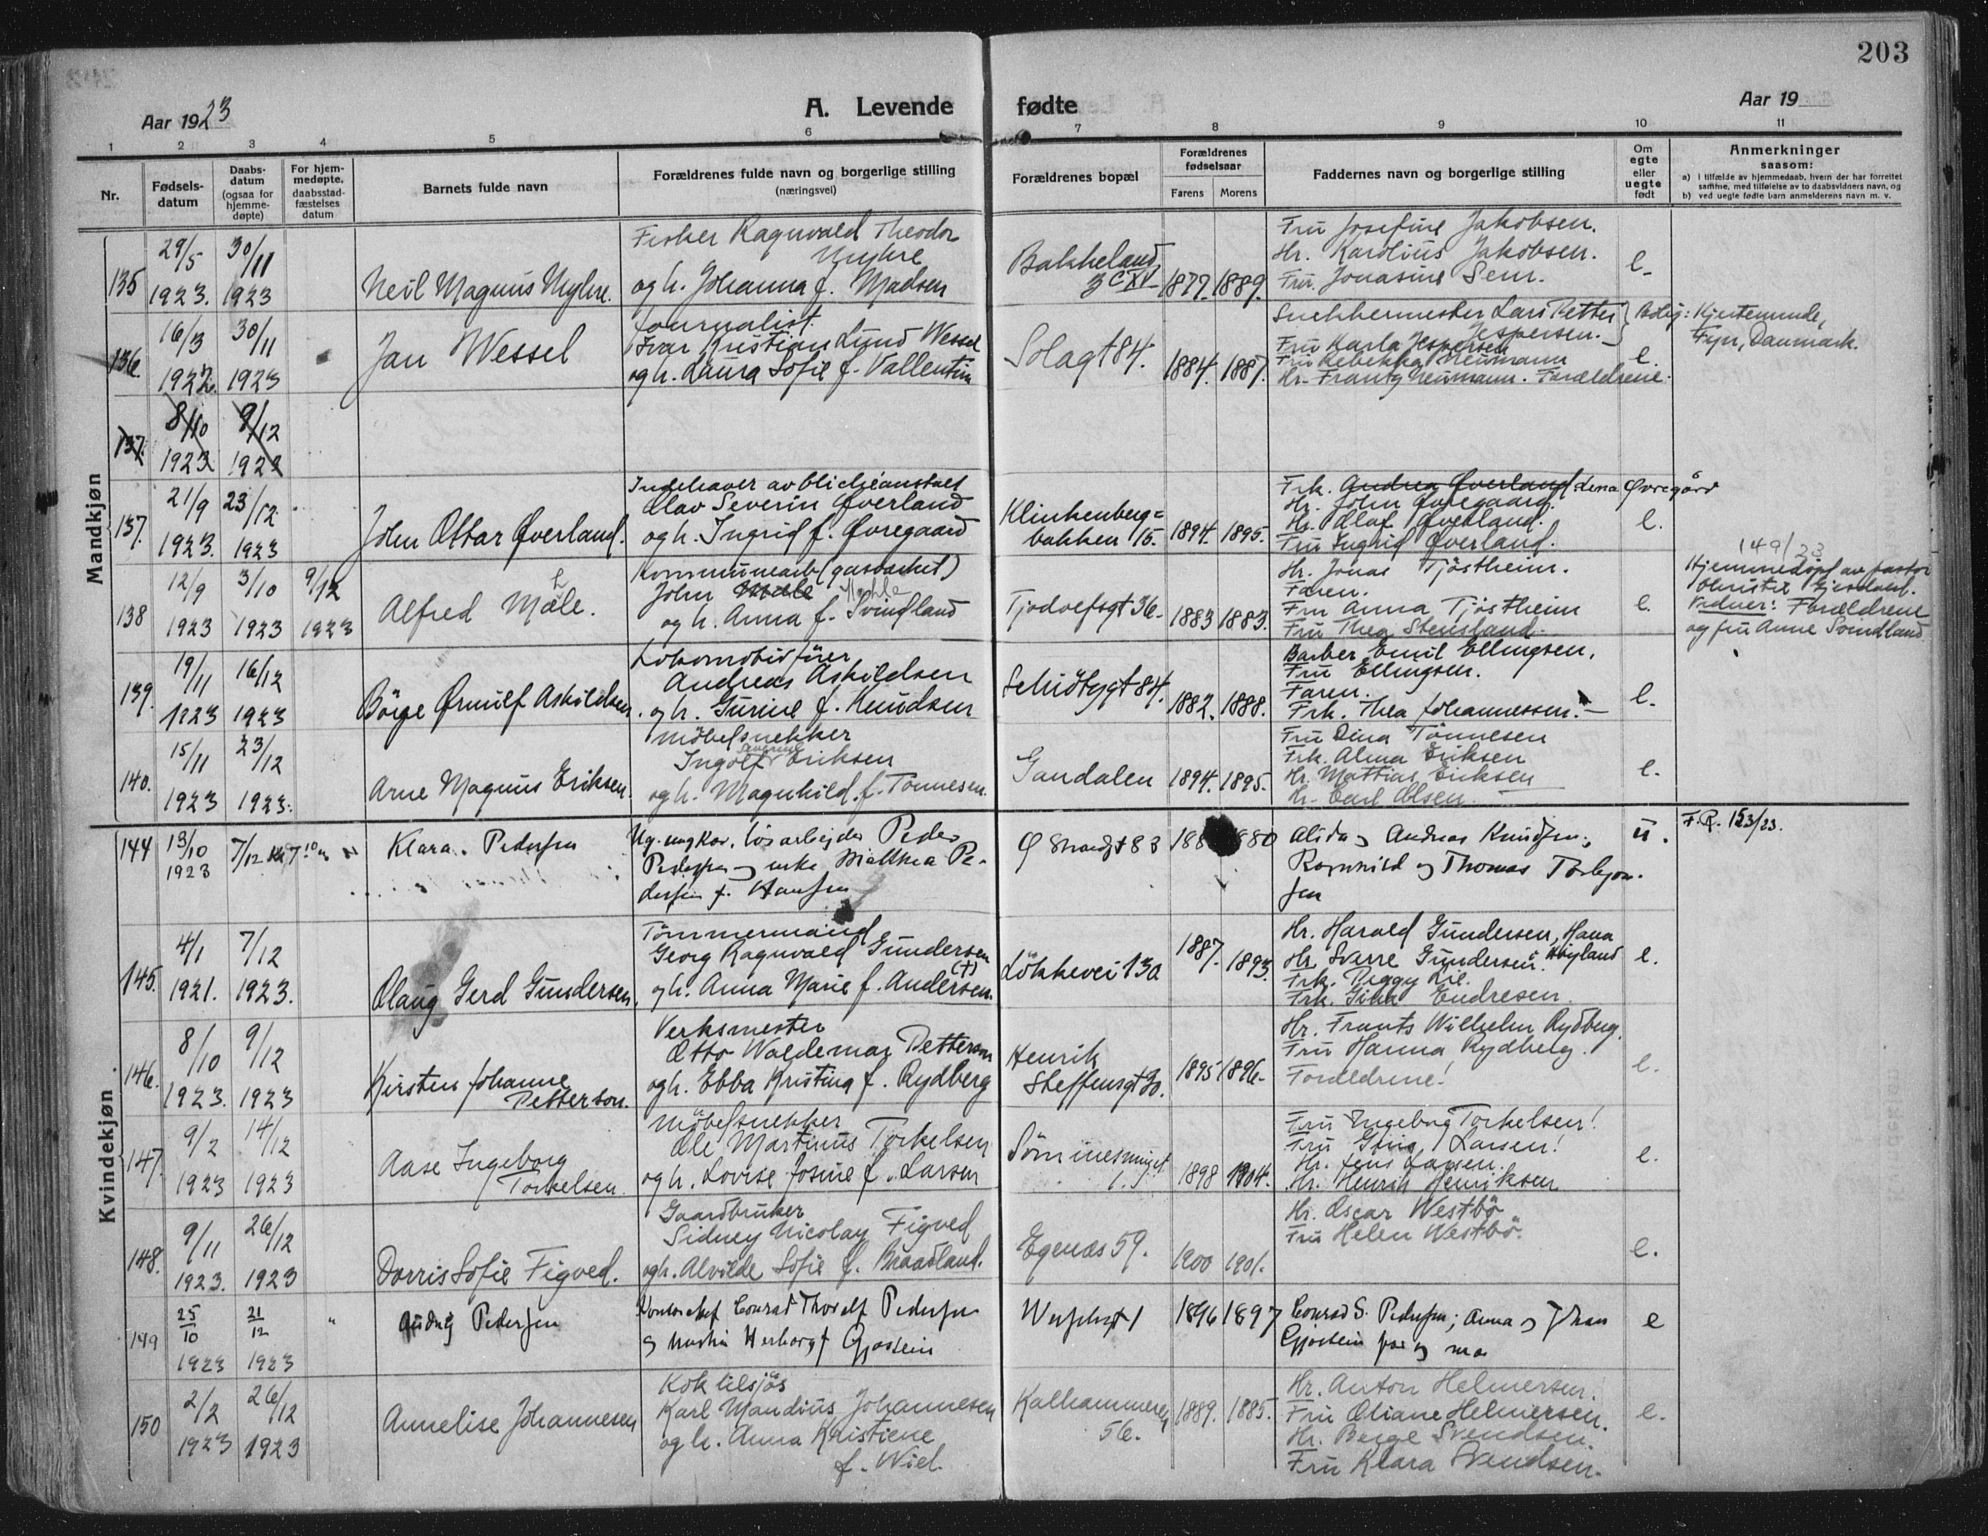 203
Aar 1923
A. Levende fødte
Aar 19
1 2 3 4 5 6 7 8 9 10 11
Nr.
Fødsels-
datum
Daabs-
datum
(ogsaa for
hjemme-
døpte)
For hjem-
medøpte,
daabsstad-
fæstelses
datum
Barnets fulde navn
Forældrenes fulde navn og borgerlige stilling
(næringsvei)
Forældrenes bopæl
Forældrenes
fødselsaar
Farens Morens
Faddernes navn og borgerlige stilling
Om
egte
eller
uegte
født
Anmerkninger
saasom:
a) i tilfælde av hjemmedaab, hvem der har forrettet
samme, med tilføielse av to daabsvidners navn, og
b) ved uegte fødte barn anmelderens navn m. v.
Mandkjøn
135
29/5 1923.
30/11 1923
Neil Magnus Myhre.
Fisker Ragnvald Theodor
Myhre
og h. Johanna f. Madsen
Bakkeland
3 C XV
1877 1889.
Fru Josefine Jakobsen.
Hr. Karolius Jakobsen.
Fru Jonasine Sem.
e.
136.
16/3 1922.
30/11 1923
Jan Wessel
Journalist.
Ivar Kristian Lund Wessel
og h. Laura Sofie f. Vallentin
Solagt 84.
1884. 1887.
Lars Petter
Jespersen.
Fru Karla Jespersen
Fru Rebekka Neumann
Hr. Frantz Neumann. Forældrene.
e.
Bolig: Kjerteminde,
Fyn, Danmark.
137.
8/10 1923
9/12 1923
137.
21/9 1923.
23/12 1923
John Ottar Øverland.
Indehaver av clicheanstalt
Olav Severin Øverland
og h. Ingrid f. Øvregaard
Klinkenberg=
bakken 15.
1894. 1895.
Frk. Andrea Øverland Lena Øvregård
Hr. John Øvregaard.
Hr. Olaf Øverland.
Fru Ingrid Øverland.
e.
138
12/9 1923
3/10 1923
9/12 1923
Alfred Mæle.
Kommunearb (gasverket)
John Mæle
og h. Anna f. Svindland
Tjodolfsgt 36.
1883 1883.
Hr. Jonas Tjøstheim.
Faren.
Fru Anna Tjøstheim
Fru Thea Stensland.
e.
149/23
Hjemmedøpt av pastor
Vidner: Forældrene
og fru Anne Svindland
139.
19/11 1923
16/12 1923
Börge Ørnulf Askildsen.
Lokomotivfører
Andreas Askildsen
og h. Gurine f. Knudsen
Schiötzgt 84.
1882. 1888.
Barber Emil Ellingsen.
Fru Ellingsen.
Faren.
Frk. Thea Johannessen.
e.
140.
15/11 1923
23/12 1923.
Arne Magnus Eriksen.
Møbelsnekker
Ingolf Severin Eriksen
og h. Magnhild f. Tönnesen.
Gandalen
1894. 1895.
Fru Dina Tønnesen
Frk. Alma Eriksen
Hr. Mattias Eriksen
Hr. Carl Olsen.
e.
Kvindekjøn
144
13/10 1923
7/12
Klara Pedersen
Ug. ungkar, løsarbejder Peder
Pedersen og enke Malthea Pe-
dersen f. Hansen
Ø Strandgt 83
1880
Alida og Andreas Knudsen;
Ragnhild og Thomas Torbjørn-
sen
u.
F.R. 153/23.
145.
4/1 1921.
7/12 1923.
Olaug Gerd Gundersen.
Tömmermand
Georg Ragnvald Gundersen
og h. Anna Marie f. Andersen. (†)
Lökkevei 130
1887. 1893.
Hr. Harald Gundersen, Hana
Hr. Sverre Gundersen. Høyland
Frk. Peggy Lie.
Frk. Gina Endresen.
e.
146.
8/10 1923.
9/12 1923
Kirsten Johanne
Petterson.
Verksmester
Otto Waldemar Petterson
og h. Ebba Kristina f. Rydberg
Henrik
Steffensgt 30.
1895 1896.
Hr. Frants Wilhelm Rydberg.
Fru Hanna Rydberg.
Forældrene!
e.
147.
9/2 1923
14/12 1923
Aase Ingeborg
Torkelsen.
Møbelsnekker
Ole Martinus Torkelsen
og h. Lovise Josine f. Larsen
1898 1904.
Fru Ingeborg Torkelsen!
Fru Gina Larsen!
Hr. Jens Larsen.
Hr. Henrik Henriksen
e.
148.
9/11 1923.
26/12 1923
Dorris Sofie Figved.
Gaardbruker
Sidney Nicolay Figved
og h. Alvilde Sofie f. Braadland.
Egenæs 59.
1900 1901.
Hr. Oscar Westbö
Fru Helen Westbö.
e.
149
25/10 1923
21/12 1923
"
Audny Pedersen
Kontorchef Conrad Thoralf Pedersen
og hustru Herborg f Gjøstein
1896 1897
Conrad S. Pedersen; Anna og Johan
Gjøstein far og mor
e
150
2/2 1923
26/12 1923
Annelise Johannesen
Kok tilsjös
Karl Mandius Johannesen
og h. Anna Kristiene
f. Wiel.
Kalhammeren
56.
1889. 1885.
Hr. Anton Helmersen.
Fru Oliane Helmersen.
Hr. Berge Svendsen.
Fru Klara Svendsen.
e.